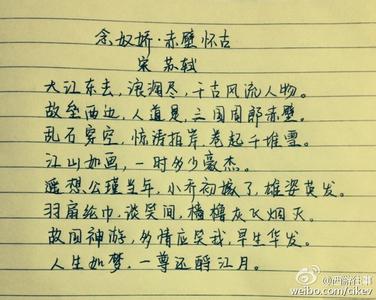 念奴娇·赤壁怀古
宋 苏轼
大江东去，浪淘尽，千古风流人物。
故垒西边，人道是，三国周郎赤壁。
乱石穿空，惊涛拍岸，卷起千堆雪。
江山如画，一时多少豪杰。
遥想公瑾当年，小乔初嫁了，雄姿英发。
羽扇纶巾，谈笑间，樯橹灰飞烟灭。
故国神游，多情应笑我，早生华发。
人生如梦，一尊还酹江月。
weibo.com/cikev